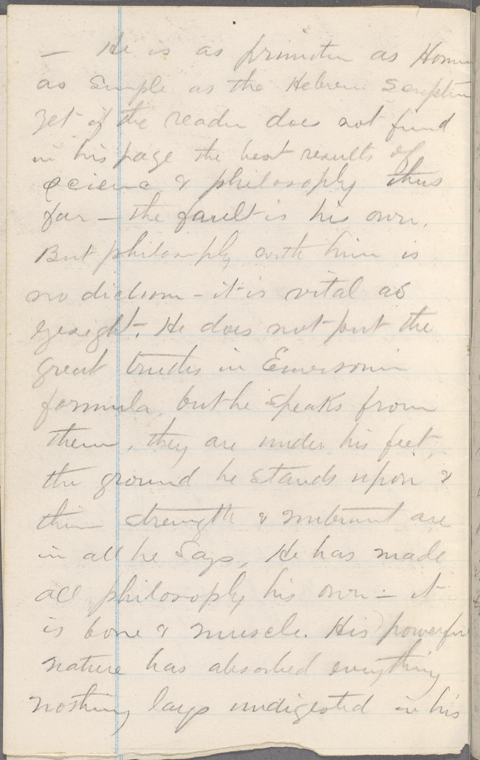 — He is as primitive as Homer
as simple as the Hebrew Scripture
Yet if the reader does not find
in his page the best results of
science & philosophy thus
far — the fault is his own.
But philosophy with him is
no dictum — it is vital as
eyesight. He does not put the
great truths in Emersonian
formula, but he speaks from
them, they are under his feet,
the ground he stands upon &
their strength & nutriment are
in all he says. He has made
all philosophy his own — it
is bone & muscle. His powerful
nature has absorbed everything
nothing lays undigested in his